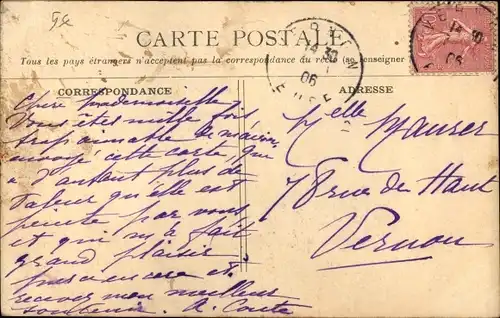 CARTE POSTALE
Tous les pays étrangers n'acceptent pas la correspondance au recto (se renseigner
CORRESPONDANCE
ADRESSE
Chère Mademoiselle
Vous êtes mille fois
trop aimable de m'avoir
envoyé cette carte, qui
a d'autant plus de
valeur qu'elle est
peinte par vous
et qui m'a fait
grand plaisir
recevez mon meilleur
souvenir. A. Conte
Melle Maurer
78 rue de Haut
Vernon
14 30
06
06